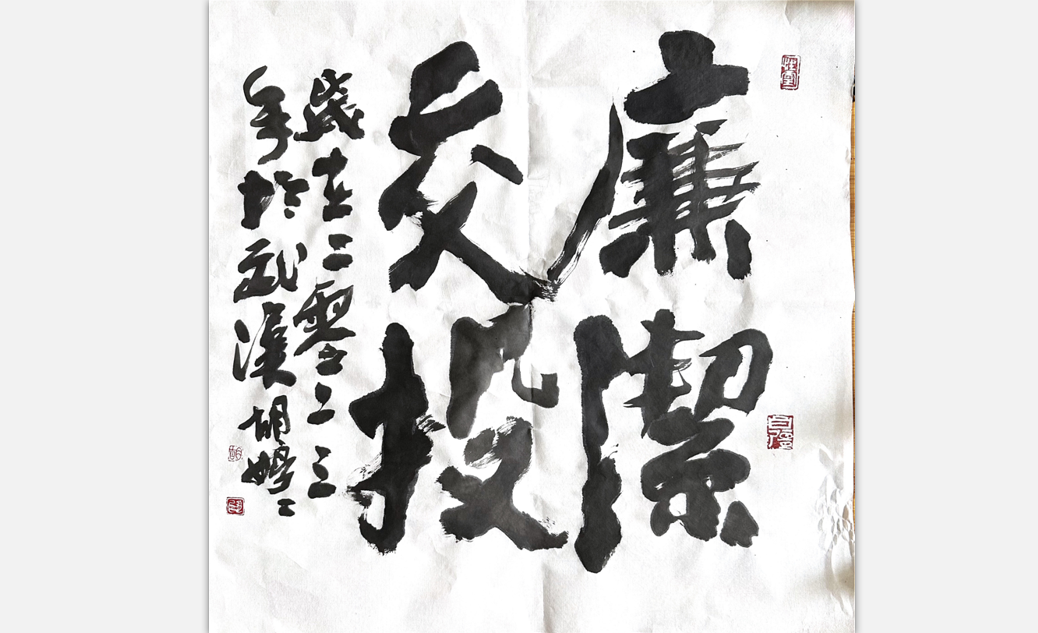 廉潔
交投
歲在二零二三
年於武漢胡